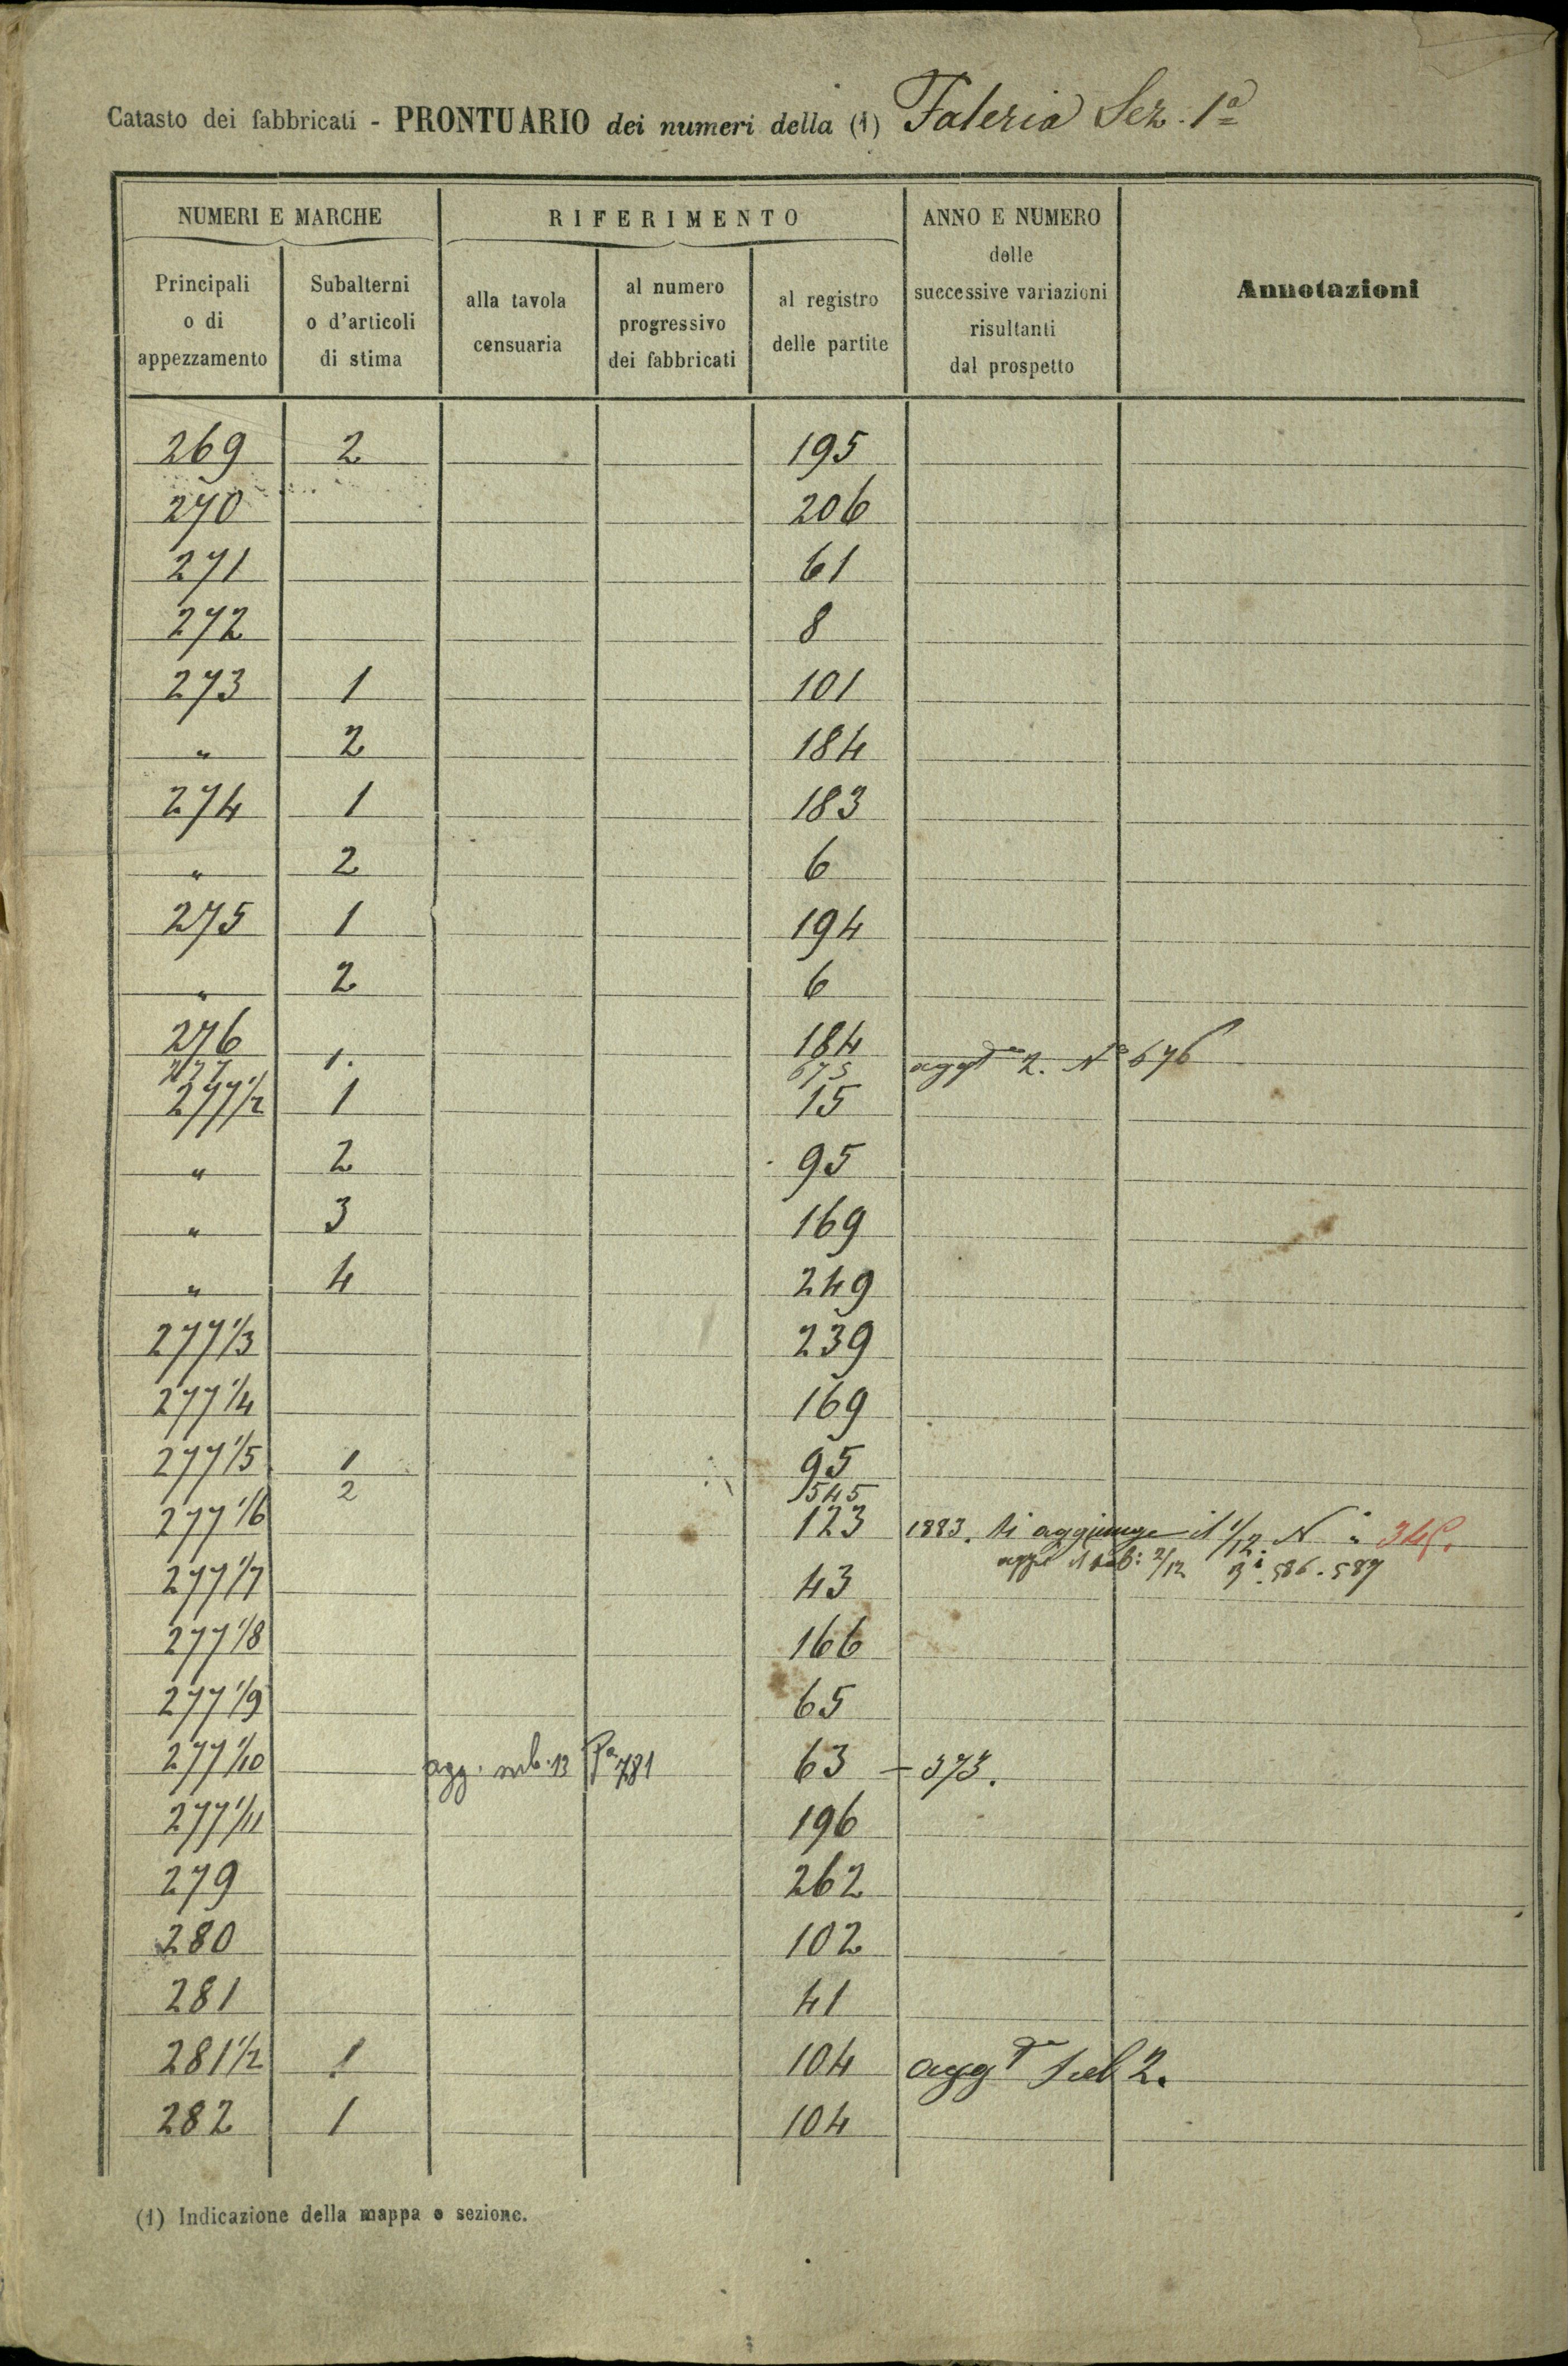 Catasto dei fabbricati - PRONTUARIO dei numeri della (1) Faleria Sez. 1ª
NUMERI E MARCHE
RIFERIMENTO
ANNO E NUMERO
delle
successive variazioni
risultanti
dal prospetto
Annotazioni
Principali
o di
appezzamento
Subalterni
o d'articoli
di stima
alla tavola
censuaria
al numero
progressivo
dei fabbricati
al registro
delle partite
269 2 195
270 206
271 61
272 8
273 1 101
" 2 184
274 1 183
" 2 6
275 1 194
" 2 6
276 184
277 1. 675 2. N° 676
277 1/2 1 15
" 2 95
" 3 169
" 4 249
277 1/3 239
277 1/4 169
277 1/5 1 95
2 545
277 1/6 123 1883. Si aggiunge il 1/12. N
il sub: 2/12 586.587
277 1/7 43
277 1/8 166
277 1/9 65
277 1/10 agg. sub. 13 Pª 781 63 - 373.
277 1/11 196
279 262
280 102
281 41
281 1/2 1 104 Sub 2.
282 1 104
(1) Indicazione della mappa o sezione.